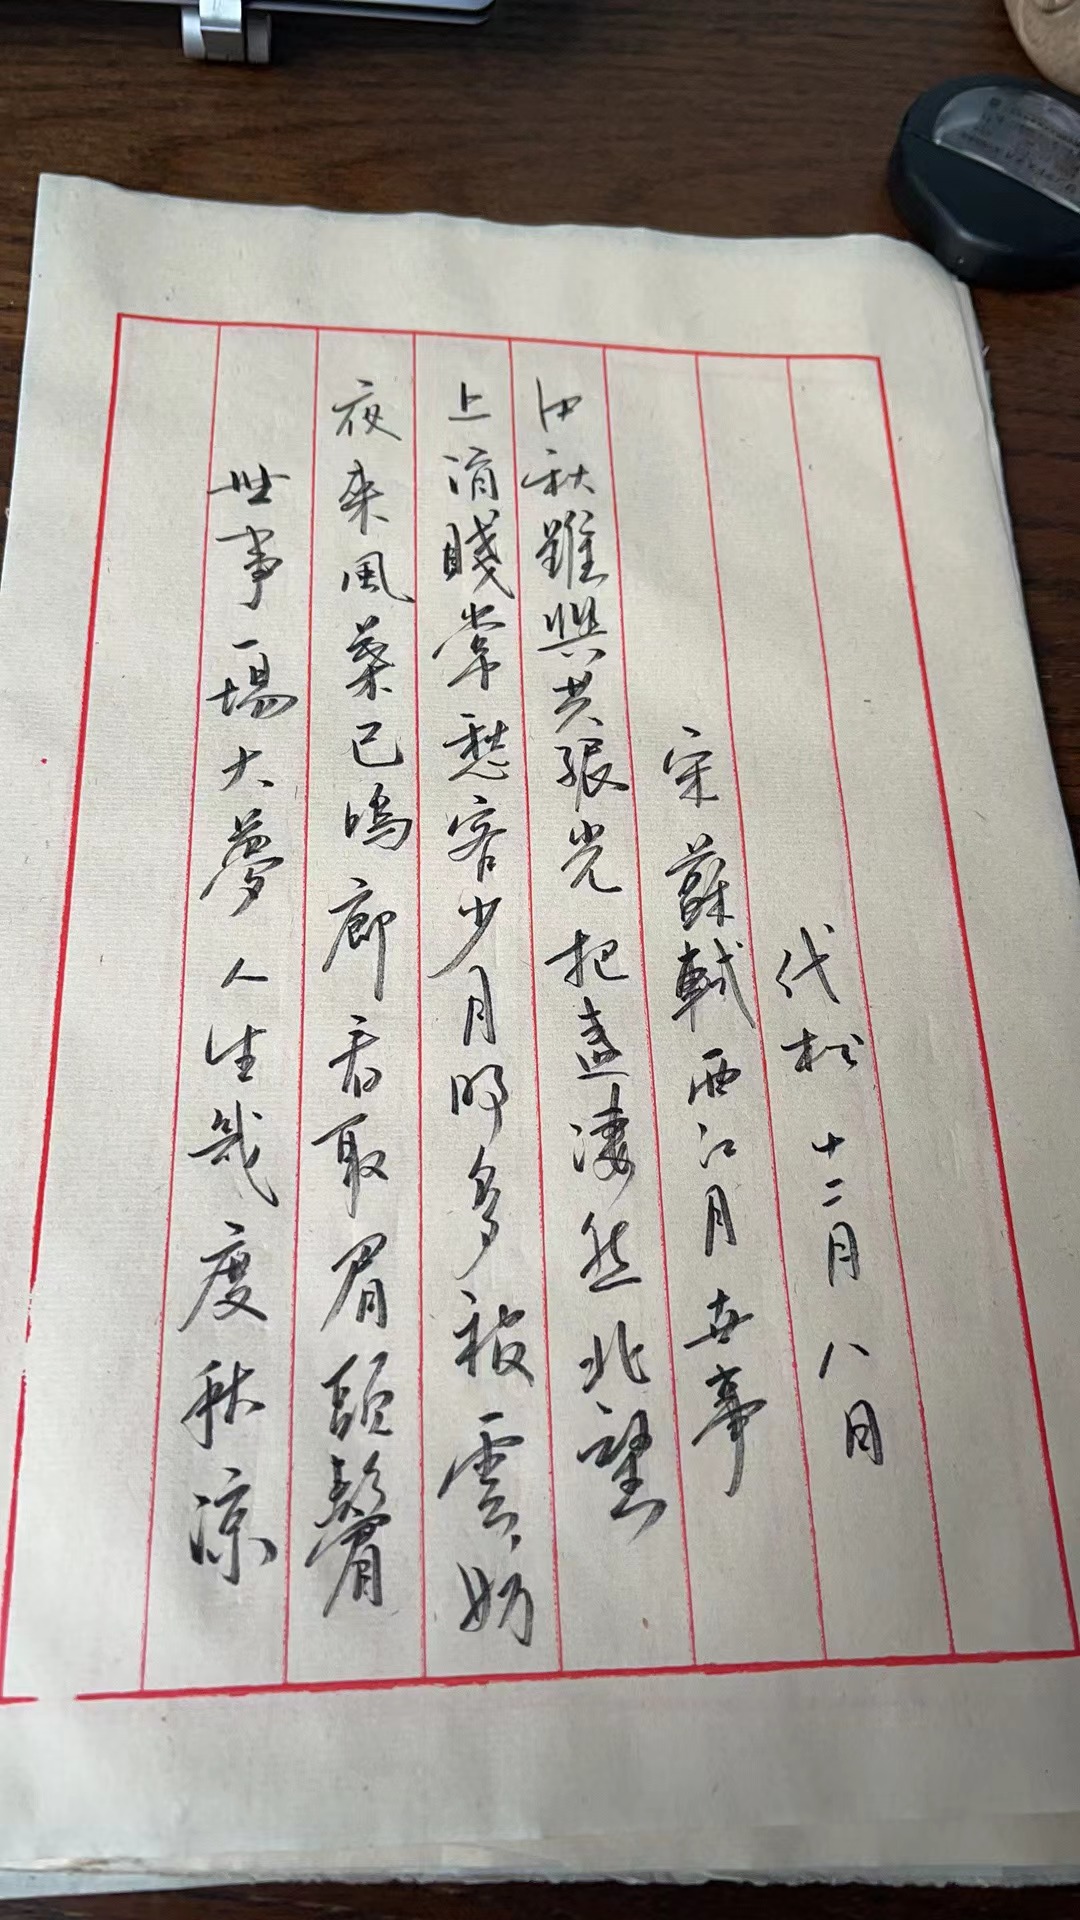 世事一場大夢人生幾度秋涼
夜来風葉已鳴廊看取眉頭鬢
上酒賤常愁客少月明多被雲妨
中秋誰與共孤光把盞淒然北望
宋蘇軾西江月世事
代松十二月八日